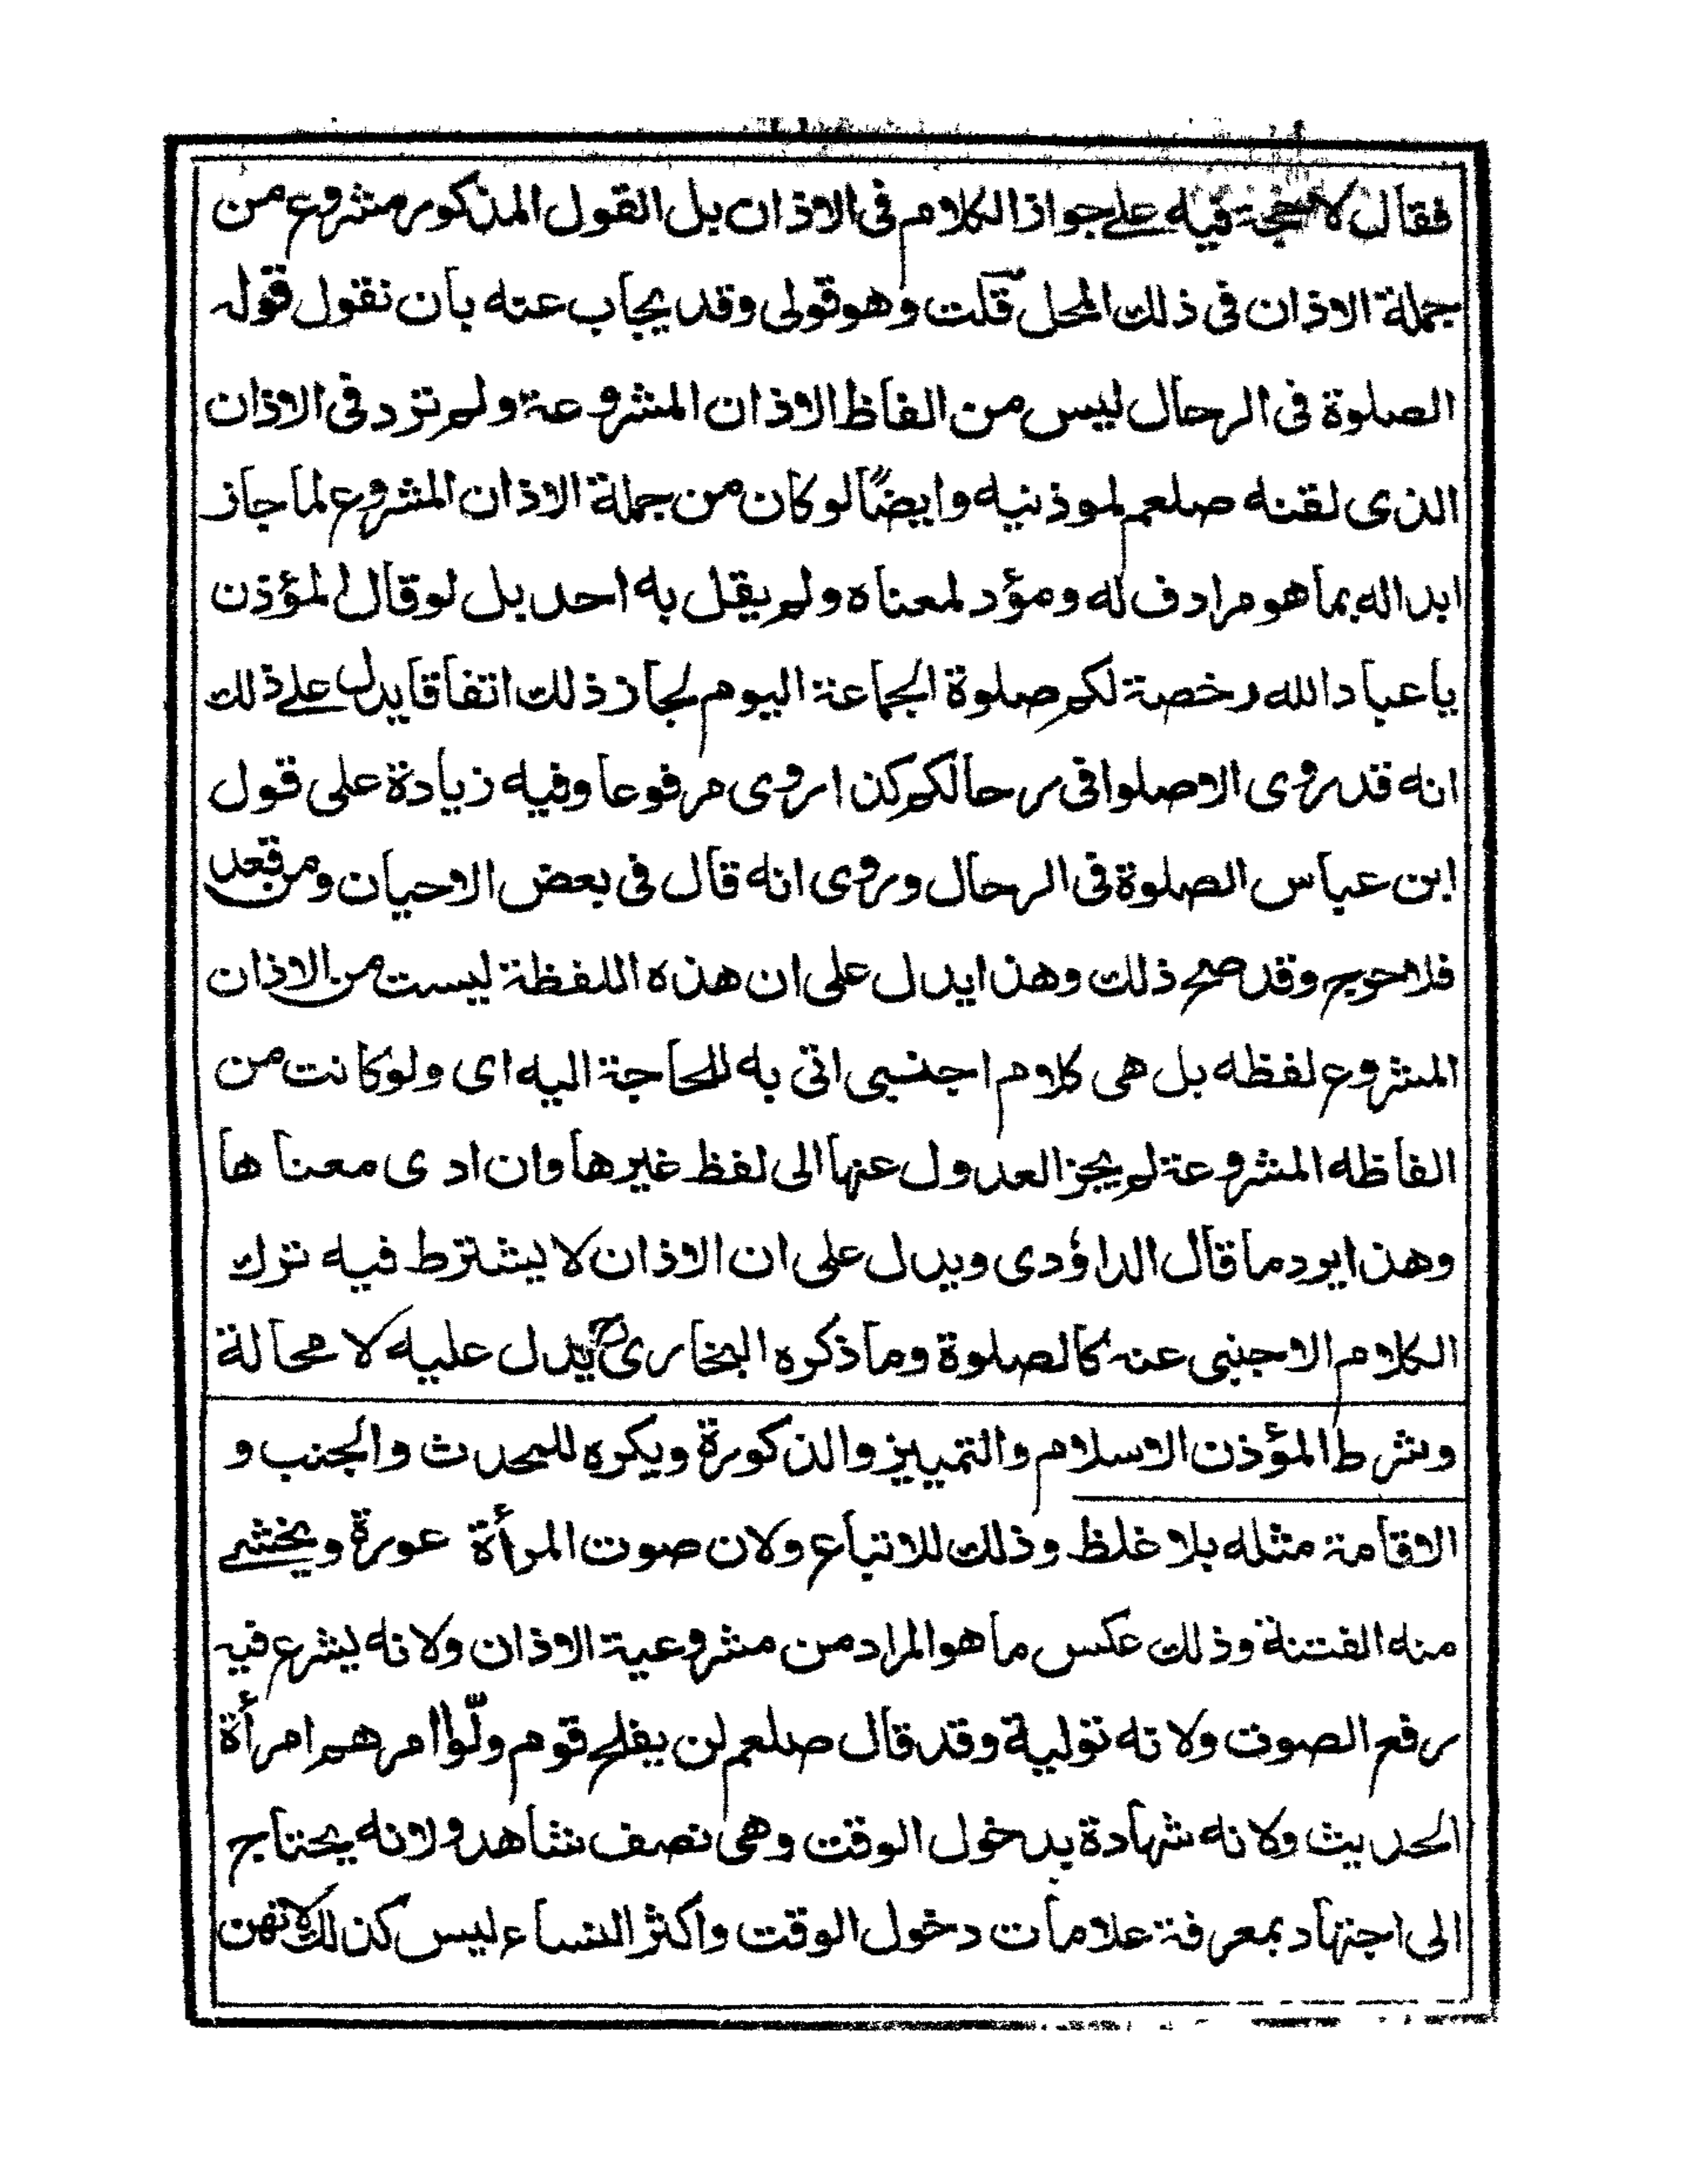 فقال لا حجة فيه على جواز الكلام فى الاذان بل القول المذكور مشروع من
جملة الاذان فى ذلك المحل قلت وهو قولى وقد يجاب عنه بان نقول قوله
الصلوة فى الرحال ليس من الفاظ الاذان المشروعة ولم ترد فى الاذان
الذى لقنه صلعم لموذنيه وايضًا لو كان من جملة الاذان المشروع لما جاز
ابداله بما هو مرادف له ومؤد لمعناه ولم يقل به احد بل لو قال المؤذن
يا عباد الله رخصة لكم صلوة الجماعة اليوم لجاز ذلك اتفاقا يدل على ذلك
انه قد روى الا صلوا فى رحالكم كذا روى مرفوعا وفيه زيادة على قول
ابن عباس الصلوة فى الرحال وروى انه قال فى بعض الاحيان ومن قعد
فلا حرج وقد صح ذلك وهذا يدل على ان هذه اللفظة ليست من الاذان
المشروع لفظه بل هى كلام اجنبى اتى به للحاجة اليه اى ولو كانت من
الفاظه المشروعة لم يجز العدول عنها الى لفظ غيرها وان ادى معناها
وهذا يرد ما قال الداؤدى ويدل على ان الاذان لا يشترط فيه ترك
الكلام الاجنبى عنه كالصلوة وما ذكره البخارى رح يدل عليه لا محالة
وشرط المؤذن الاسلام والتمييز والذكورة ويكره للمحدث والجنب و
الاقامة مثله بلا غلظ وذلك للاتباع ولان صوت المرأة عورة ويخشى
منه الفتنة وذلك عكس ما هو المراد من مشروعية الاذان ولانه يشرع فيه
رفع الصوت ولانه تولية وقد قال صلعم لن يفلح قوم ولّوا امرهم امرأة
الحديث ولانه شهادة بدخول الوقت وهى نصف شاهد ولانه يحتاج
الى اجتهاد بمعرفة علامات دخول الوقت واكثر النساء ليس كذلك لانهن